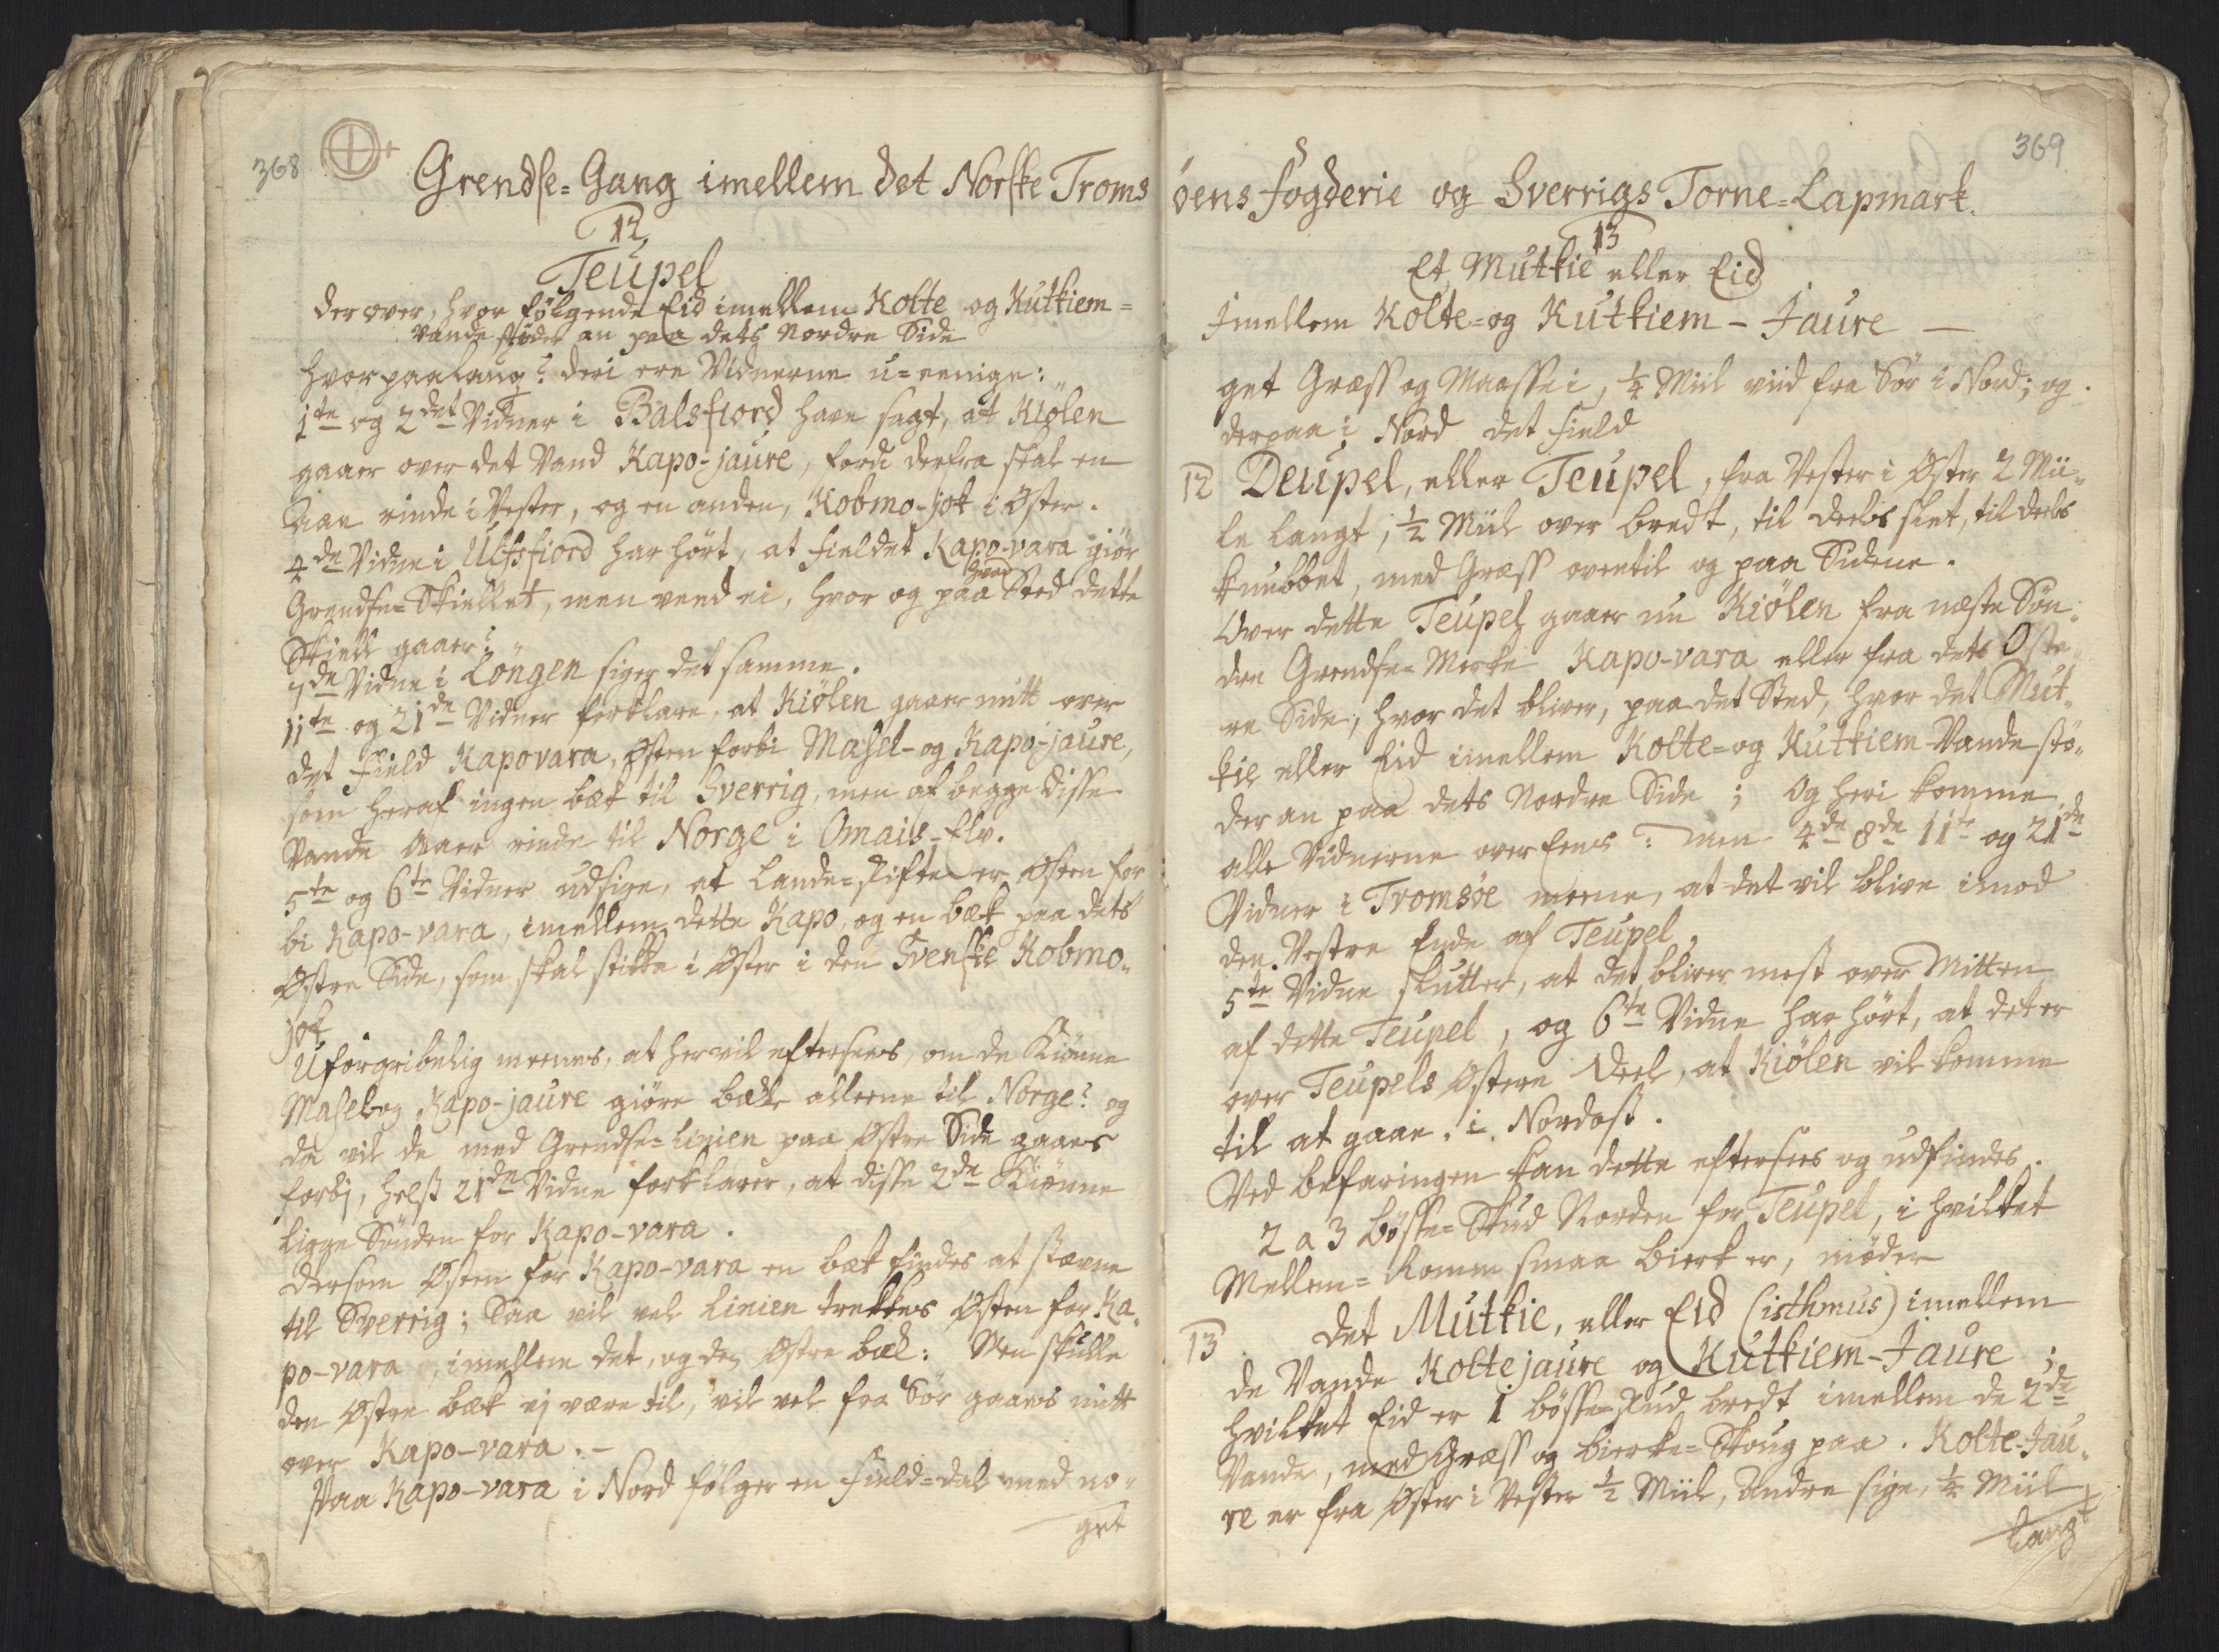 368
Grendse=Gang imellem det Norske Troms
12
Teupel
derover, hvor følgende Eid imellem Kolte og Kutkiem=
Vande støder an paa dets Nordre Side
hvorpaalaug? deri ere Vidnerne u=eenige:
1te og 2det Vidner i Balsfiord have sagt, at Kiølen
gaaer over det Vand Kapo-jaure, fordi derfra skal en
Aae rinde i Vester, og en anden, Kobmo-jok i Øster.
4de Vidne i Ulfsfiord har hørt, at fieldet Kapo-vara giør
Grendse=Skiellet, men veed ei, hvor og paa hvad Sted dette
Skiell gaaer:
7de Vidne i Löngen siger det samme.
11te og 21de Vidner forklare, at Kiølen gaaer mitt over
det Field Kapovara, Østen forbi Masel- og Kapo-jaure,
som heraf ingen bæk til Sverrig, men af begge disse
Vande Aaer rinde til Norge i Omais-Elv.
5te og 6te Vidner udsige, at Lande=skifte er Østen for
bi Kapo-vara, imellem dette Kapo, og en bæk paa dets
Østre Side, som skal stikke i Øster i den Svenske Kobmo-
jok
Uforgribelig meenes, at her vil eftersees, om de Kiønne
Masel og Kapo-jaure giøre bæk alleene til Norge? og
da vil de med Grendse=Linien paa Østre Side gaaes
forbj, helst 21de Vidne forklarer, at disse 2de Kiønne
ligge Sønden for Kapo-vara.
Dersom Østen for Kapo-vara en bæk findes at stævne
til Sverrig; Saa vil vel Linien trekkes Østen for Ka-
po-vara, imellem det, og den Østre bæk: Men skulle
den Østre bæk ej være til, vil vel fra Sør gaaes mitt
over Kapo-vara.-
Paa Kapo-vara i Nord følger en Field=dal med no-
get
369
øens fogderie og Sverrigs Torne=Lapmark.
13
Et Mutkie eller Eid
Imellem Kolte= og Kutkiem-Jaure —
get Græss og Maasse i, ¼ Miil viid fra Sør i Nord; og
derpaa i Nord det field
12 Deupel, eller Teupel, fra Vester i Øster 2 Mii-
le langt, ½ Miil over bredt, til deels slet, til deels
knubbet, med Græss oventil og paa Sidene.
Over dette Teupel gaaer nu Kiølen fra næste Søn-
dre Grendse=Merke Kapo-vara eller fra dets Øste-
re Side, hvor det bliver, paa det Sted, hvor det Mut-
kie eller Eid imellem Kolte= og Kutkiem-Vande stø-
der an paa dets Nordre Side; Og heri komme
alle Vidnerne over Eens: men 4de 8de 11te og 21de
Vidner i Tromsøe meene, at det vil blive imod
den Vestre Ende af Teupel.
5te Vidne slutter, at det bliver mest over Mitten
af dette Teupel, og 6te Vidne har hørt, at det er
over Teupels Østere Deel, at Kiølen vil komme
til at gaae i Nordost.
Ved befaringen kan dette eftersees og udfindes.
2 a 3 bøsse=Skud Norden for Teupel, i hvilket
Mellem=Romm smaa bierk er, møder
13 det Mutkie, eller Eid (isthmus) imellem
de Vande Koltejaure og Kutkiem-Jaure;
hvilket Eid er 1 bøsse=skud bredt imellem de 2de
Vande, med Græss og bierke=Skoug paa. Kolte-Jau-
re er fra Øster i Vester ½ Miil, Andre sige, ¼ Miil
langt